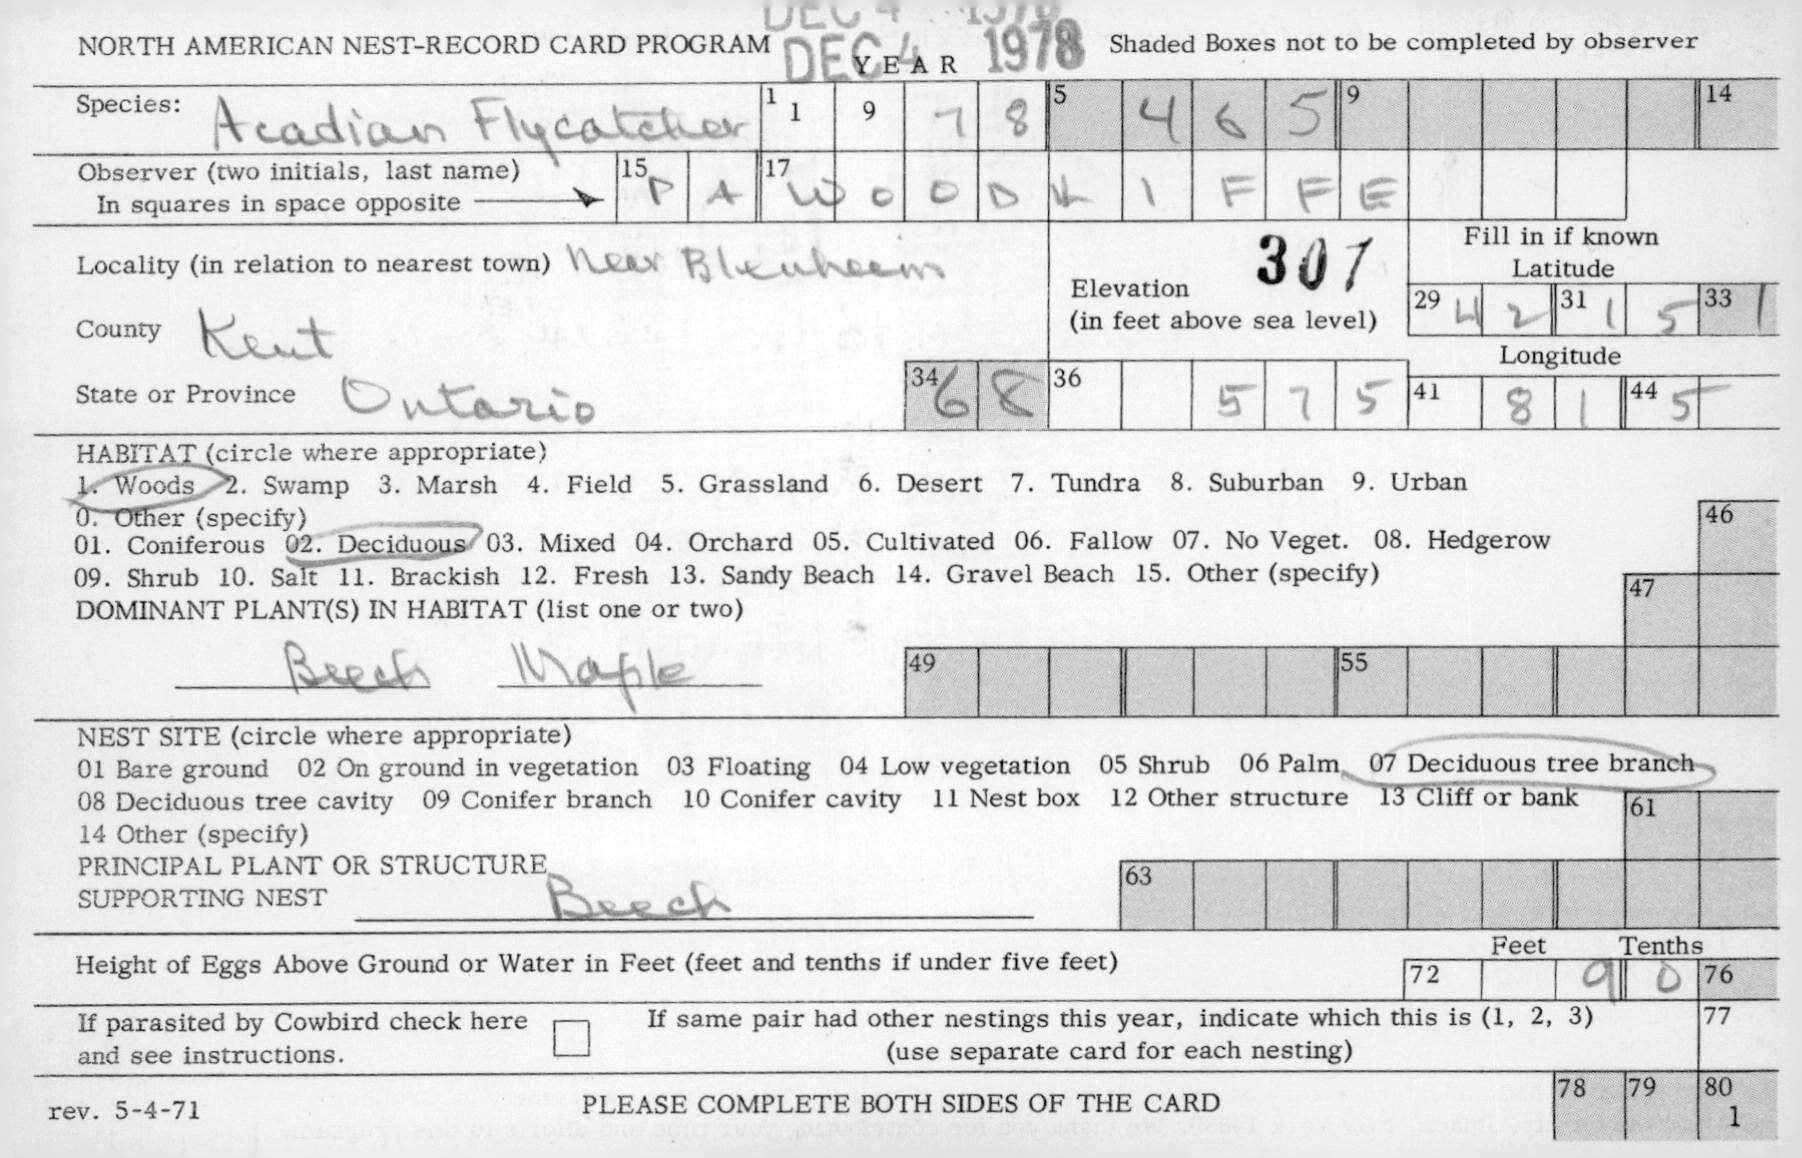 DEC 4 1978
NORTH AMERICAN NEST-RECORD CARD PROGRAM DEC 4 1978 Shaded Boxes not to be completed by observer
YEAR
Species: Acadian Flycatcher 1 1 9 7 8 5 4 6 5 9 14
Observer (two initials, last name) 15 P A 17 W O O D L I F F E
In squares in space opposite
Locality (in relation to nearest town) Near Blenheim
307
Fill in if known
Latitude
Elevation
(in feet above sea level)
29 4 2 31 1 5 33 1
County Kent
Longitude
State or Province Ontario 34 6 8 36 5 7 5 41 8 1 44 5
HABITAT (circle where appropriate)
1. Woods 2. Swamp 3. Marsh 4. Field 5. Grassland 6. Desert 7. Tundra 8. Suburban 9. Urban
0. Other (specify) 46
01. Coniferous 02. Deciduous 03. Mixed 04. Orchard 05. Cultivated 06. Fallow 07. No Veget. 08. Hedgerow
09. Shrub 10. Salt 11. Brackish 12. Fresh 13. Sandy Beach 14. Gravel Beach 15. Other (specify) 47
DOMINANT PLANT(S) IN HABITAT (list one or two)
Beech Maple 49 55
NEST SITE (circle where appropriate)
01 Bare ground 02 On ground in vegetation 03 Floating 04 Low vegetation 05 Shrub 06 Palm 07 Deciduous tree branch
08 Deciduous tree cavity 09 Conifer branch 10 Conifer cavity 11 Nest box 12 Other structure 13 Cliff or bank 61
14 Other (specify)
PRINCIPAL PLANT OR STRUCTURE
SUPPORTING NEST Beech 63
Feet Tenths
Height of Eggs Above Ground or Water in Feet (feet and tenths if under five feet) 72 9 0 76
If parasited by Cowbird check here If same pair had other nestings this year, indicate which this is (1, 2, 3) 77
and see instructions. (use separate card for each nesting)
rev. 5-4-71 PLEASE COMPLETE BOTH SIDES OF THE CARD 78 79 80
1